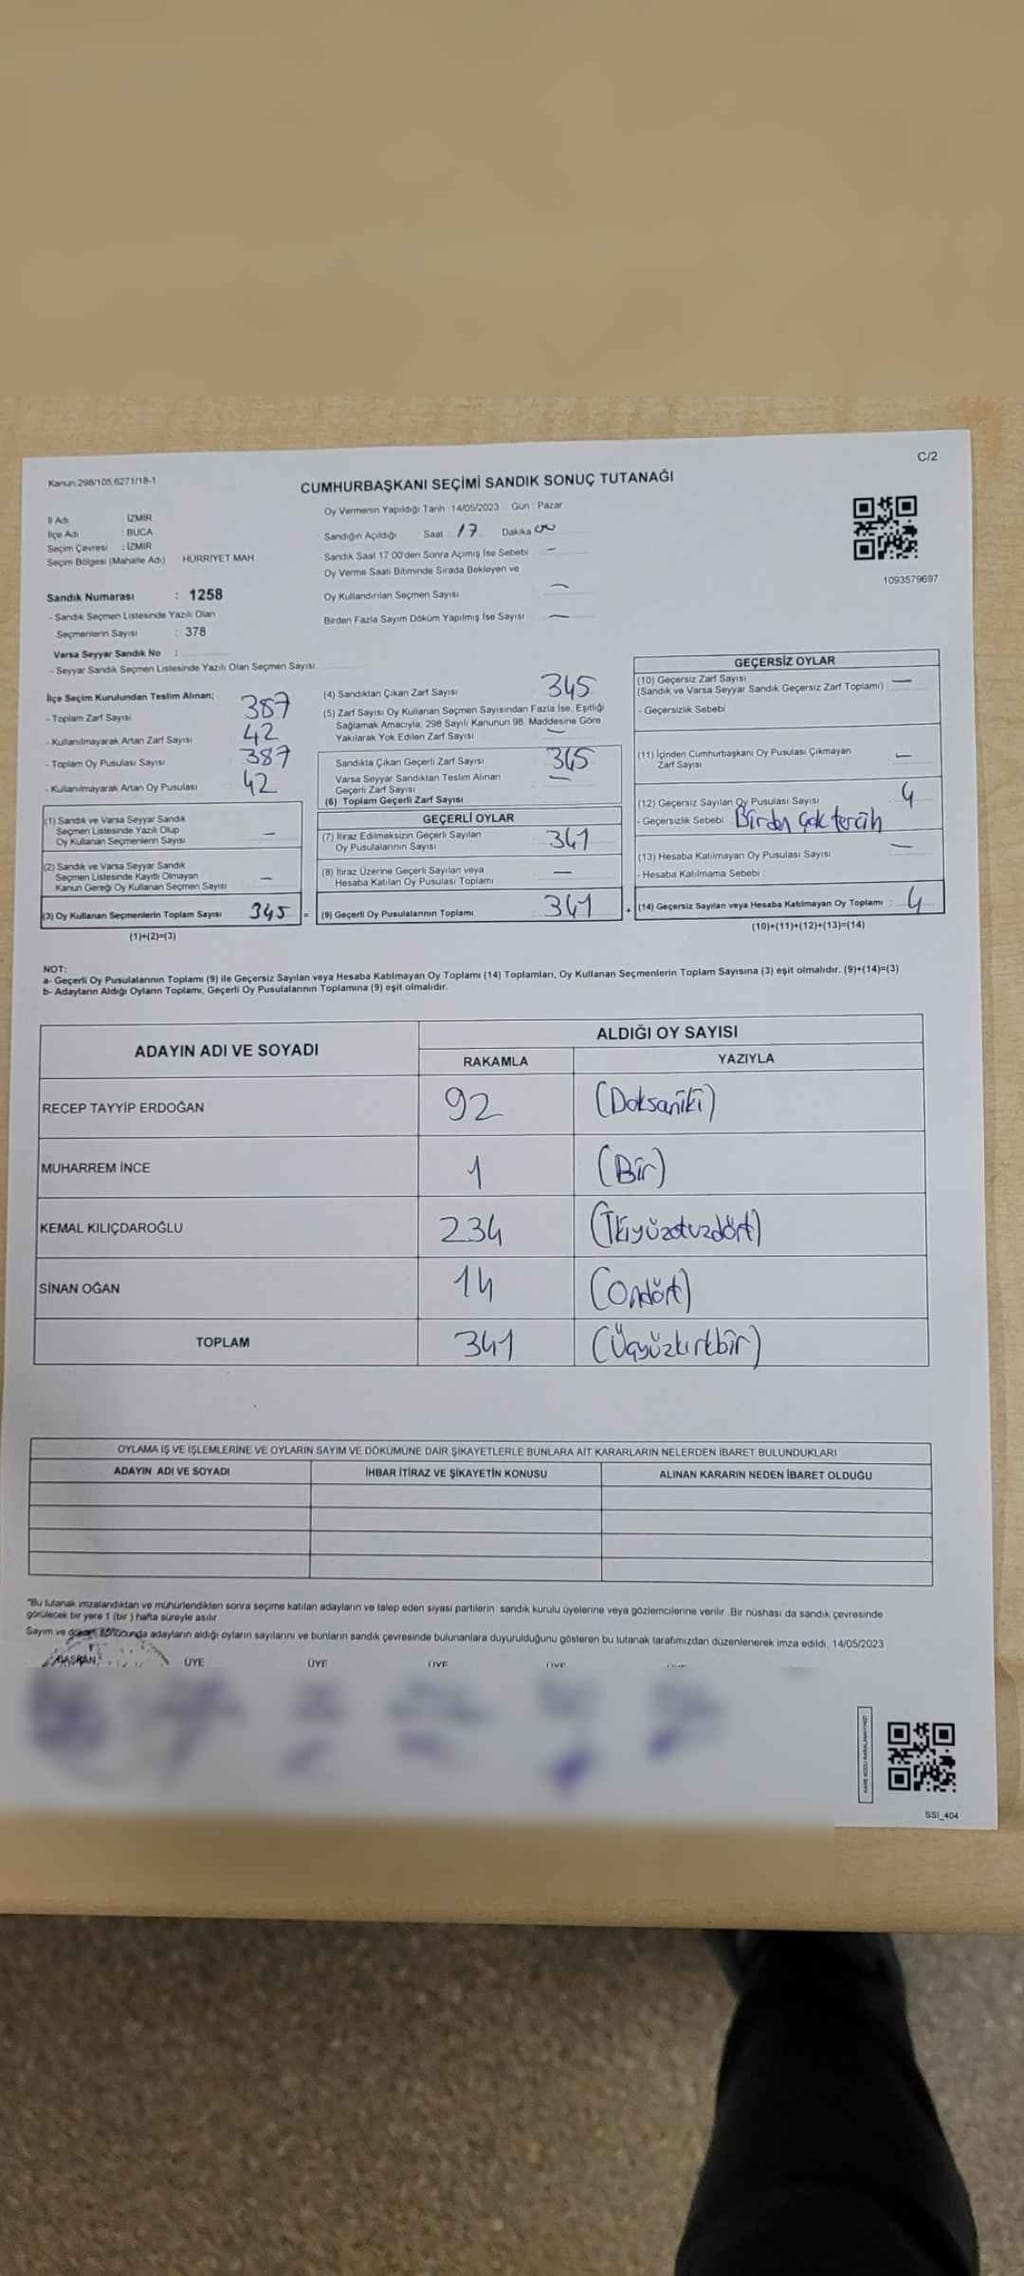 Kanun.298/105,6271/18-1
C/2
CUMHURBAŞKANI SEÇİMİ SANDIK SONUÇ TUTANAĞI
İl Adı : İZMİR
İlçe Adı : BUCA
Seçim Çevresi : İZMİR
Seçim Bölgesi (Mahalle Adı) HÜRRİYET MAH
Sandık Numarası : 1258
- Sandık Seçmen Listesinde Yazılı Olan
Seçmenlerin Sayısı : 378
Varsa Seyyar Sandık No :
- Seyyar Sandık Seçmen Listesinde Yazılı Olan Seçmen Sayısı
Oy Vermenin Yapıldığı Tarih : 14/05/2023 Gün : Pazar
Sandığın Açıldığı Saat 17 Dakika 00
Sandık Saat 17.00'den Sonra Açılmış İse Sebebi —
Oy Verme Saati Bitiminde Sırada Bekleyen ve
Oy Kullandırılan Seçmen Sayısı —
Birden Fazla Sayım Döküm Yapılmış İse Sayısı —
1093579697
İlçe Seçim Kurulundan Teslim Alınan;
- Toplam Zarf Sayısı 387
- Kullanılmayarak Artan Zarf Sayısı 42
- Toplam Oy Pusulası Sayısı 387
- Kullanılmayarak Artan Oy Pusulası 42
(1) Sandık ve Varsa Seyyar Sandık
Seçmen Listesinde Yazılı Olup
Oy Kullanan Seçmenlerin Sayısı —
(2) Sandık ve Varsa Seyyar Sandık
Seçmen Listesinde Kayıtlı Olmayan
Kanun Gereği Oy Kullanan Seçmen Sayısı —
(3) Oy Kullanan Seçmenlerin Toplam Sayısı 345 =
(1)+(2)=(3)
(4) Sandıktan Çıkan Zarf Sayısı 345
(5) Zarf Sayısı Oy Kullanan Seçmen Sayısından Fazla İse, Eşitliği
Sağlamak Amacıyla, 298 Sayılı Kanunun 98. Maddesine Göre
Yakılarak Yok Edilen Zarf Sayısı —
Sandıkta Çıkan Geçerli Zarf Sayısı 345
Varsa Seyyar Sandıktan Teslim Alınan
Geçerli Zarf Sayısı —
(6) Toplam Geçerli Zarf Sayısı
GEÇERLİ OYLAR
(7) İtiraz Edilmeksizin Geçerli Sayılan
Oy Pusulalarının Sayısı 341
(8) İtiraz Üzerine Geçerli Sayılan veya
Hesaba Katılan Oy Pusulası Toplamı —
(9) Geçerli Oy Pusulalarının Toplamı 341 +
GEÇERSİZ OYLAR
(10) Geçersiz Zarf Sayısı —
(Sandık ve Varsa Seyyar Sandık Geçersiz Zarf Toplamı)
- Geçersizlik Sebebi
(11) İçinden Cumhurbaşkanı Oy Pusulası Çıkmayan
Zarf Sayısı —
(12) Geçersiz Sayılan Oy Pusulası Sayısı 4
- Geçersizlik Sebebi Birden Çok tercih
(13) Hesaba Katılmayan Oy Pusulası Sayısı —
- Hesaba Katılmama Sebebi :
(14) Geçersiz Sayılan veya Hesaba Katılmayan Oy Toplamı : 4
(10)+(11)+(12)+(13)=(14)
NOT:
a- Geçerli Oy Pusulalarının Toplamı (9) ile Geçersiz Sayılan veya Hesaba Katılmayan Oy Toplamı (14) Toplamları, Oy Kullanan Seçmenlerin Toplam Sayısına (3) eşit olmalıdır. (9)+(14)=(3)
b- Adayların Aldığı Oyların Toplamı, Geçerli Oy Pusulalarının Toplamına (9) eşit olmalıdır.
ADAYIN ADI VE SOYADI
ALDIĞI OY SAYISI
RAKAMLA YAZIYLA
RECEP TAYYİP ERDOĞAN 92 (Doksaniki)
MUHARREM İNCE 1 (Bir)
KEMAL KILIÇDAROĞLU 234 (İkiyüzotuzdört)
SİNAN OĞAN 14 (Ondört)
TOPLAM 341 (Üçyüzkırkbir)
OYLAMA İŞ VE İŞLEMLERİNE VE OYLARIN SAYIM VE DÖKÜMÜNE DAİR ŞİKAYETLERLE BUNLARA AİT KARARLARIN NELERDEN İBARET BULUNDUKLARI
ADAYIN ADI VE SOYADI İHBAR İTİRAZ VE ŞİKAYETİN KONUSU ALINAN KARARIN NEDEN İBARET OLDUĞU
"Bu tutanak imzalandıktan ve mühürlendikten sonra seçime katılan adayların ve talep eden siyasi partilerin sandık kurulu üyelerine veya gözlemcilerine verilir. Bir nüshası da sandık çevresinde
görülecek bir yere 1 (bir ) hafta süreyle asılır.
Sayım ve döküm sonucunda adayların aldığı oyların sayılarını ve bunların sandık çevresinde bulunanlara duyurulduğunu gösteren bu tutanak tarafımızdan düzenlenerek imza edildi. 14/05/2023
BAŞKAN ÜYE ÜYE ÜYE ÜYE
SSI_404